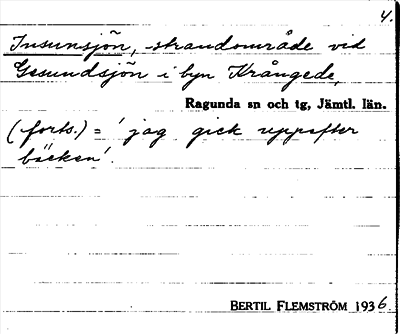 4.
Insunsjön, strandområde vid
Gesundsjön i byn Krångede,
Ragunda sn och tg, Jämtl. län.
(forts.) = 'jag gick uppefter
bäcken'.
BERTIL FLEMSTRÖM 1936.